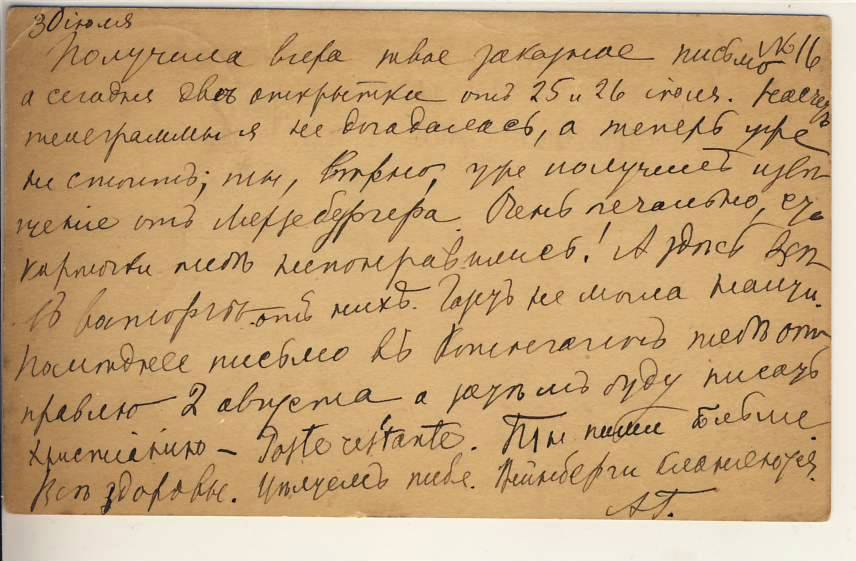 30 іюля
Получила вчера твое заказное письмо №16
а сегодня двѣ открытки отъ 25 и 26 іюля. Насчетъ
телеграммы я не догадалась, а теперь уже
не стоитъ; ты, вѣрно, уже получилъ извѣ-
щеніе отъ Мерзебургера. Очень печально, что
карточки тебѣ не понравились! А здѣсь всѣ
въ восторгѣ отъ нихъ. не могла
Послѣднее письмо въ Копенгагенъ тебѣ от-
правлю 2 августа а затѣмъ буду писать
Христіанію – Poste restante. Ты пиши
Всѣ здоровы. Цѣлуемъ тебя. Вейнберги кланяются.
АГ.